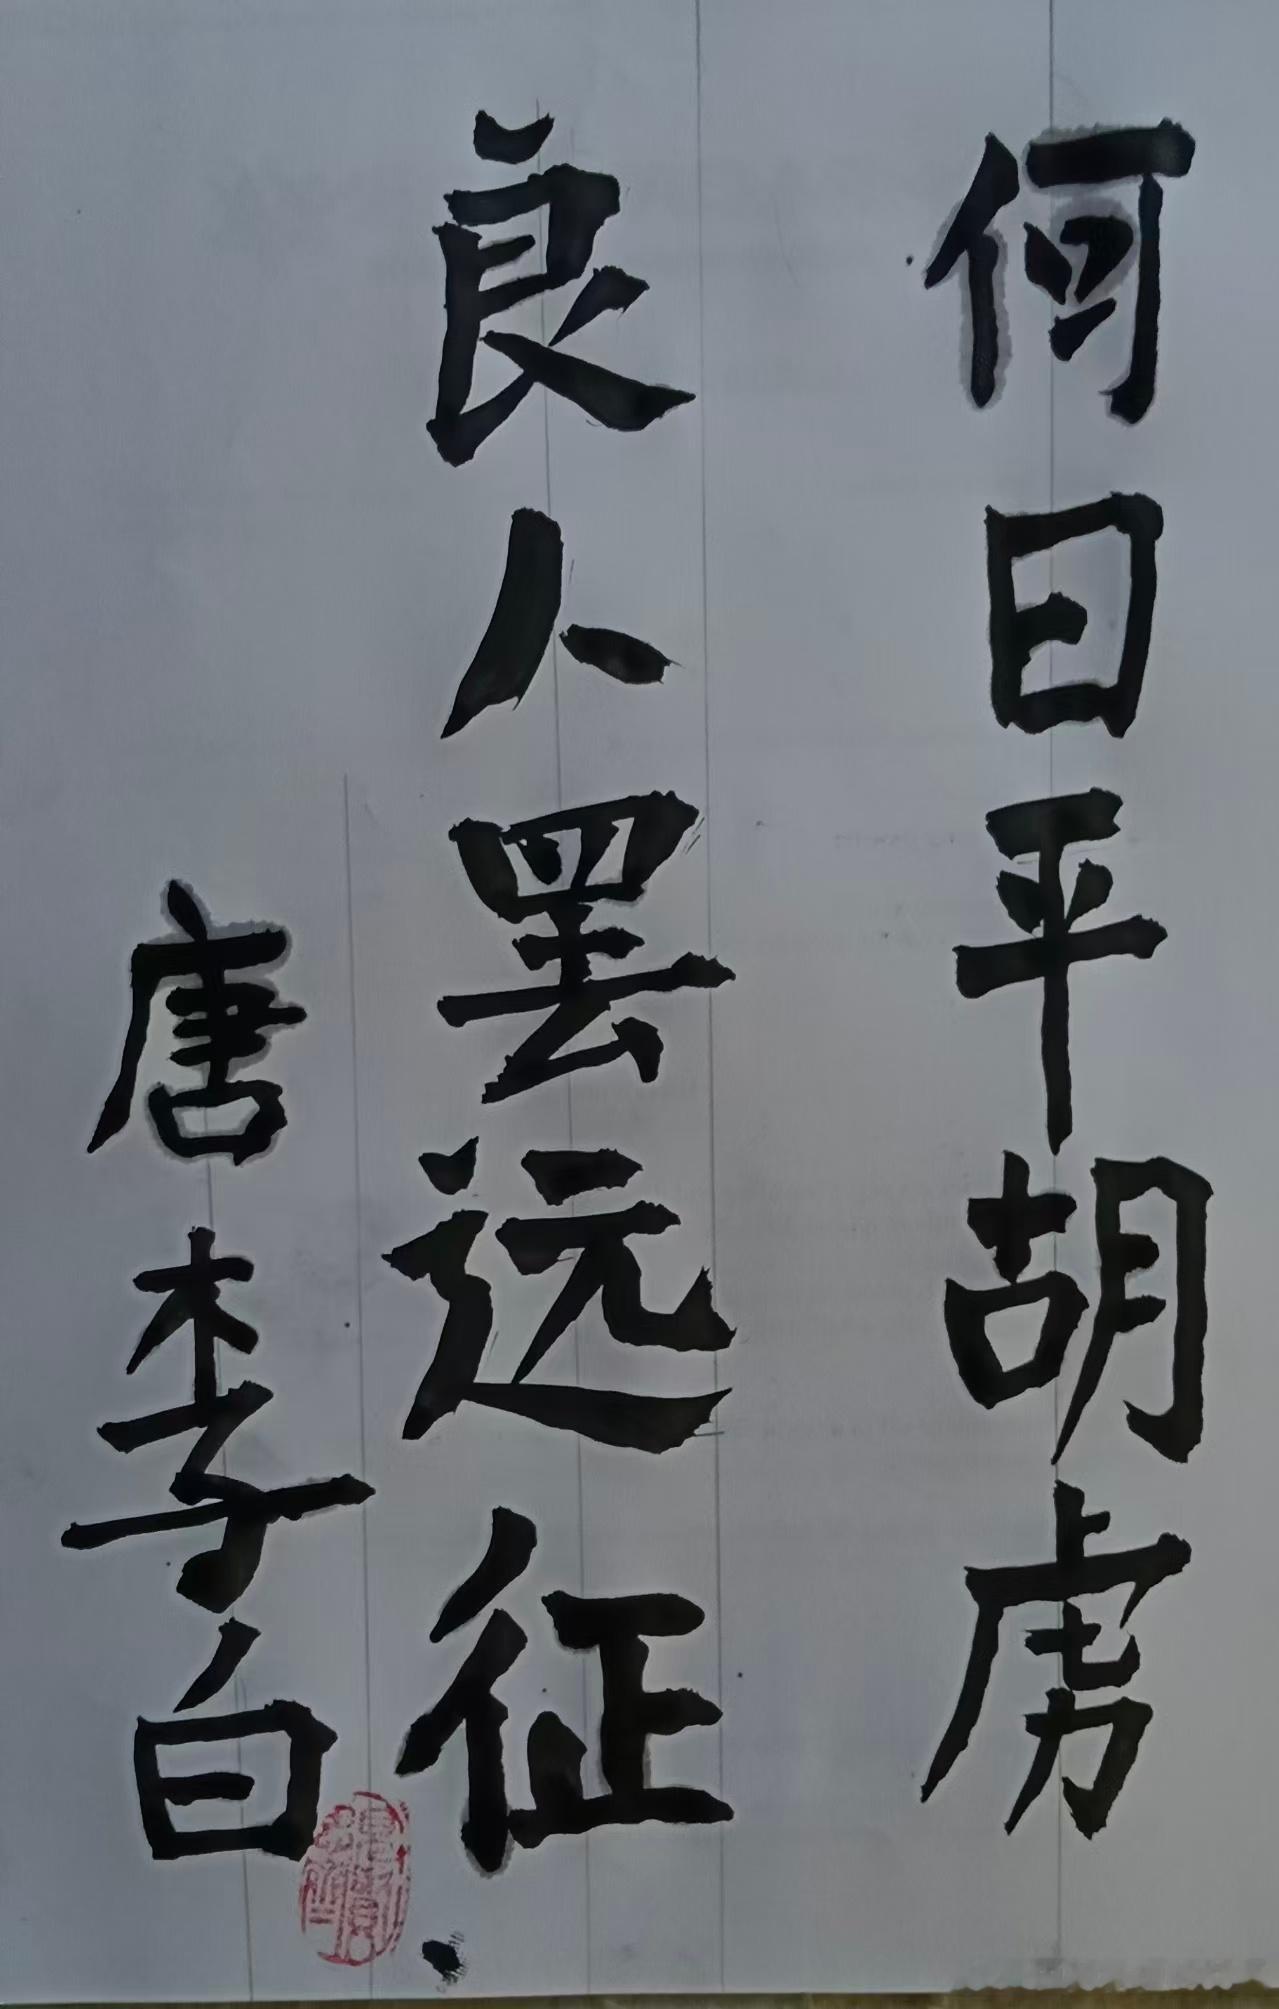 何日平胡虏
良人罢远征
唐李白